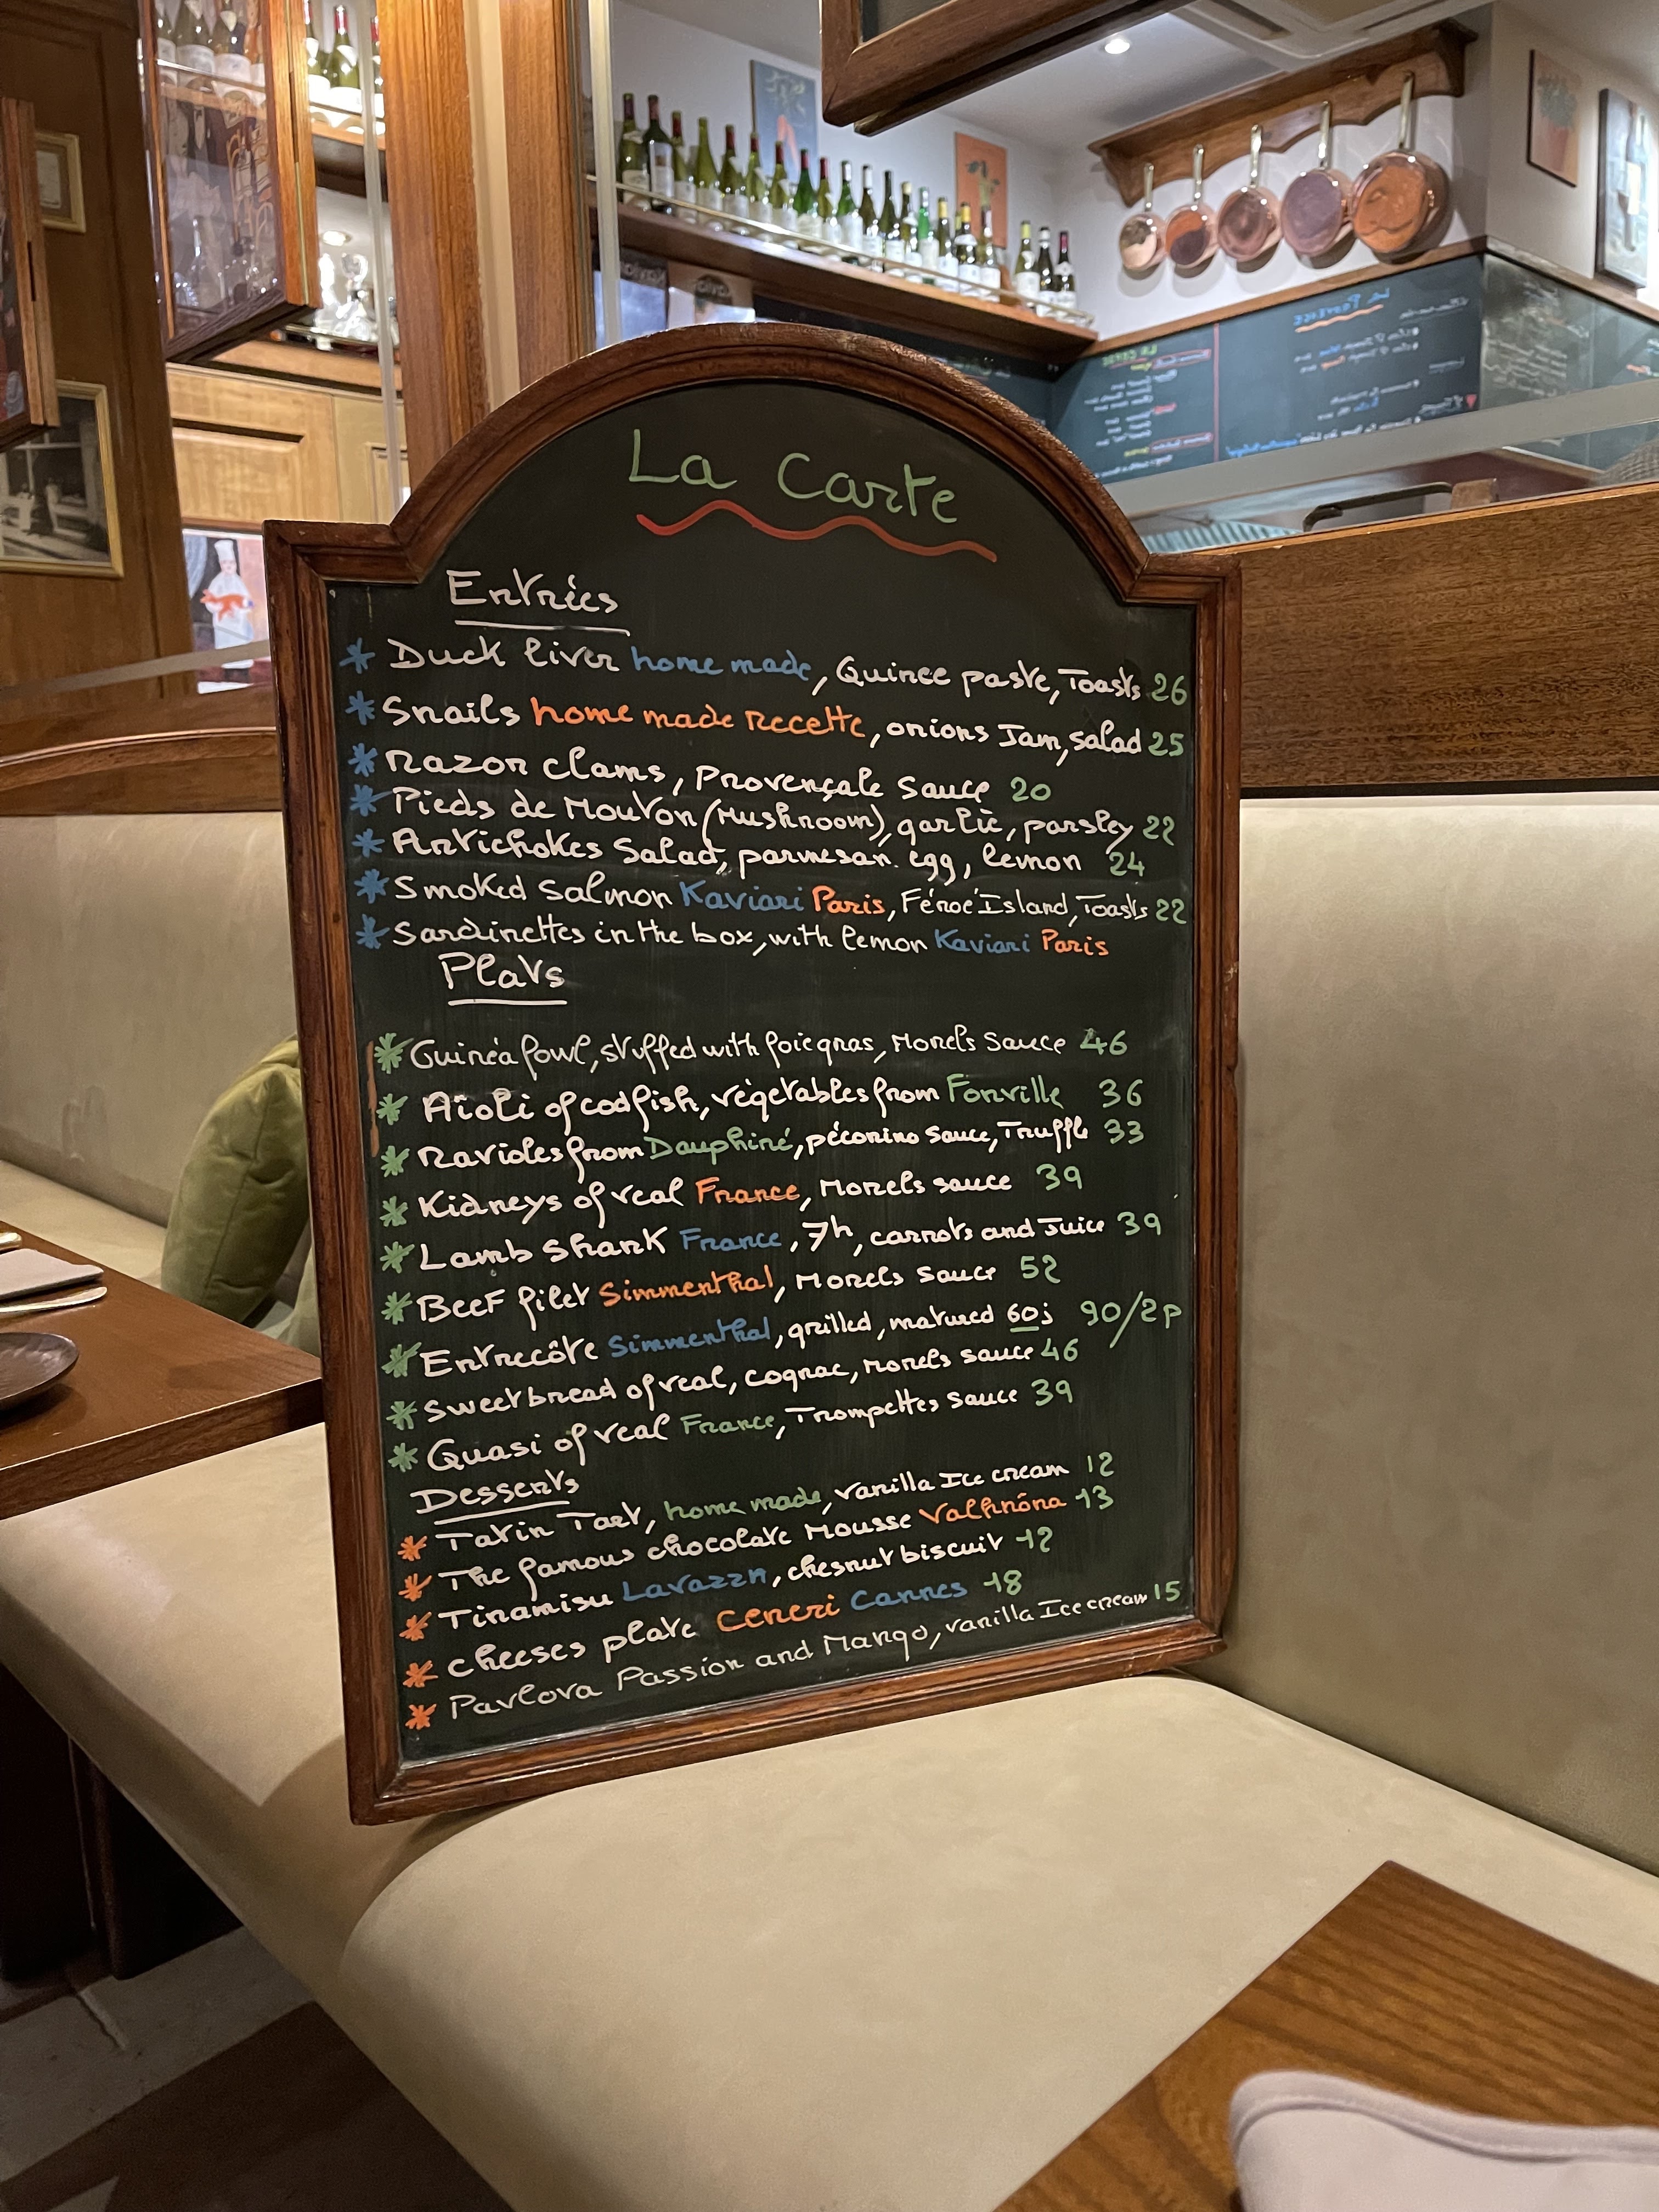 La Carte
Entriés
* Duck liver home made, Quince paste, Toasts 26
* Snails home made recette, onions Jam, salad 25
* Razor clams, Provençale sauce 20
* Pieds de Mouton (Mushroom), garlic, parsley 22
* Artichokes Salad, parmesan. egg, lemon 24
* Smoked salmon Kaviari Paris, Féroé Island, Toasts 22
* Sardinettes in the box, with lemon Kaviari Paris
Plats
* Guinéa fowl, stuffed with foie gras, Morels Sauce 46
* Aïoli of codfish, végétables from Fonville 36
* Ravioles from Dauphiné, pécorino sauce, Truffle 33
* Kidneys of veal France, Morels sauce 39
* Lamb shank France, 7h, carrots and Juice 39
* Beef filet Simmenthal, Morels sauce 52
* Entrecôte Simmenthal, grilled, matured 60j 90/2p
* Sweetbread of veal, cognac, Morels sauce 46
* Quasi of veal France, Trompettes sauce 39
Desserts
* Tatin Tart, home made, vanilla Ice cream 12
* The famous chocolate Mousse Valhrôna 13
* Tiramisu Lavazza, chesnut biscuit 12
* Cheeses plate Ceneri Cannes 18
* Pavlova Passion and Mango, vanilla Ice cream 15